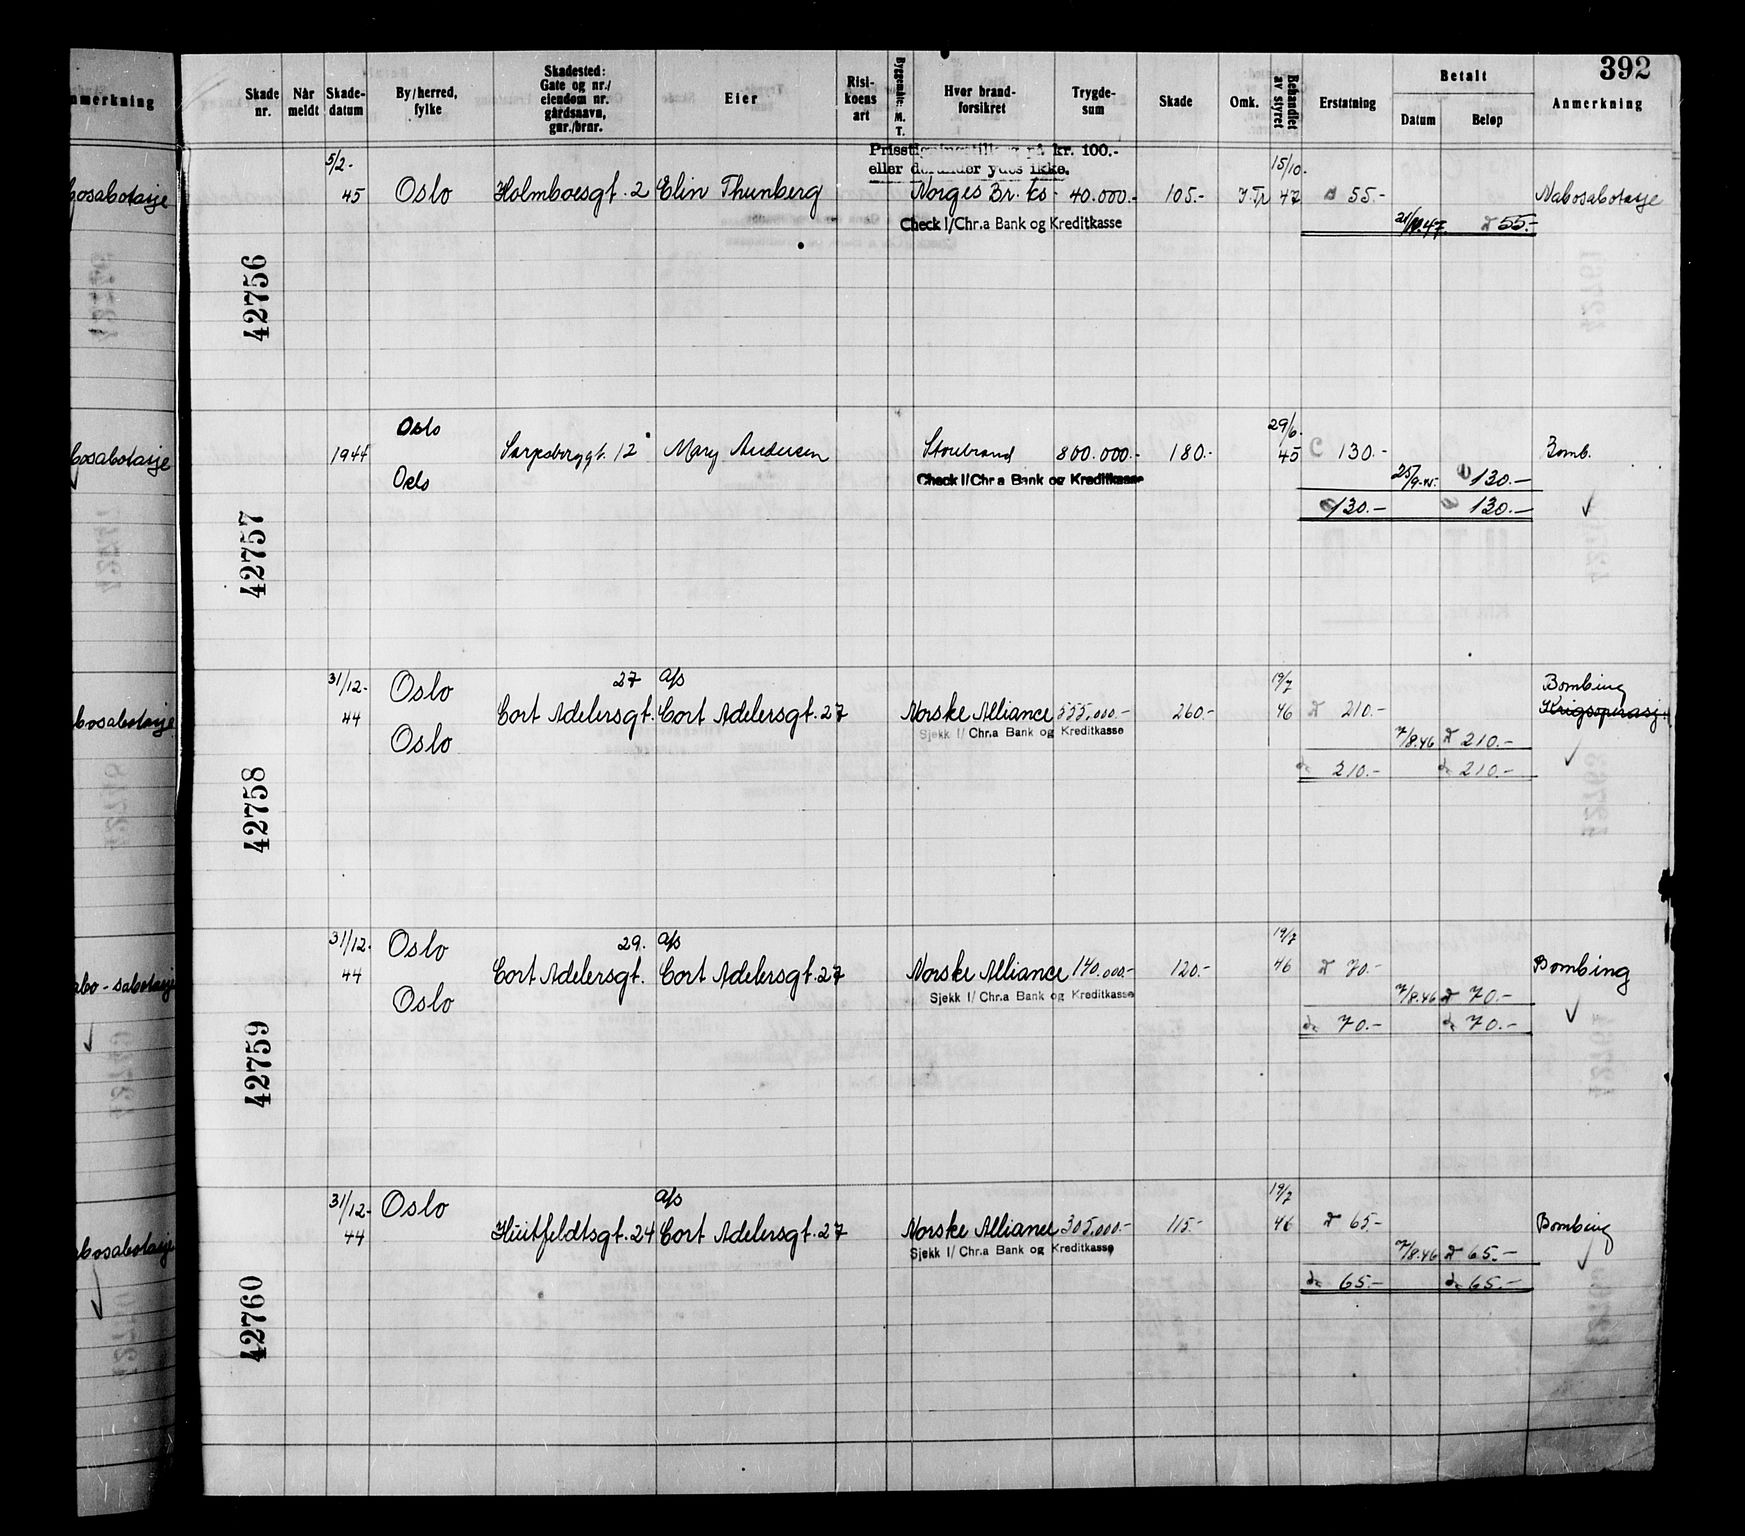 392
nmerkning
Skade nr.
Når meldt
Skade-datum
By/herred, fylke
Skadested: Gate og nr./ eiendom nr. gårdsnavn, gnr./brnr.
Eier
Risi-koens art
Hvor brand-forsikret
Trygde-sum
Skade
Omk.
Behandlet av styret
Erstatning
Betalt
Datum
Beløp
Anmerkning
bosabotasje
Prisstigningstillegg på kr. 100.-
eller derunder ydes ikke.
5/2- 15/10.
45 Oslo Holmboesgt. 2 Elin Thunberg Norges Br. ks. 40.000.- 105.- J.Tr 47 55.- Nabosabotasje
Check I/Chr.a Bank og Kreditkasse 47. 55.-
42756
Oslo 29/6.
bosabotasje
1944 Sarpsborggt. 12 Mary Andersen Storebrand 800.000.- 180.- 45 C 130.- Bomb.
Oslo Check I/Chr.a Bank og Kreditkasse 25/9-45. 130.-
130.- 130.-
42757
31/12- Oslo 27 A/s 19/7 Bombing
bosabotasje
44 Cort Adelersgt. Cort Adelersgt. 27 Norske Alliance 555.000.- 260.- 46 210.- Krigsoperasj.
Oslo Sjekk I/Chr.a Bank og Kreditkasse 7/8.46 210.-
210.- 210.-
42758
31/12- Oslo 29. A/s 19/7
abo-sabotasje
44 Cort Adelersgt. Cort Adelersgt. 27 Norske Alliance 140.000.- 120.- 46 70.- Bombing
Oslo Sjekk I/Chr.a Bank og Kreditkasse 7/8.46 70.-
70.- 70.-
42759
31/12- Oslo A/s 19/7
bosabotasje
44 Huitfeldtsgt. 24 Cort Adelersgt. 27 Norske Alliance 305.000.- 115.- 46 65.- Bombing
Sjekk I/Chr.a Bank og Kreditkasse 7/8.46 65.-
65.- 65.-
42760